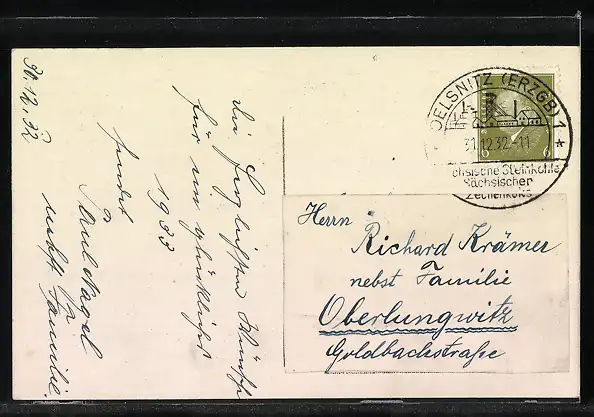 30.12.32
Die herzlichsten Wünsche
für ein glückliches
1933
sendet
Paul Nagel
nebst Familie.
OELSNITZ (ERZGB) 1
31.12.32.-11
Sächsische Steinkohle
Sächsischer
Zechenkoks
Herrn
Richard Krämer
nebst Familie
Oberlungwitz
Goldbachstraße